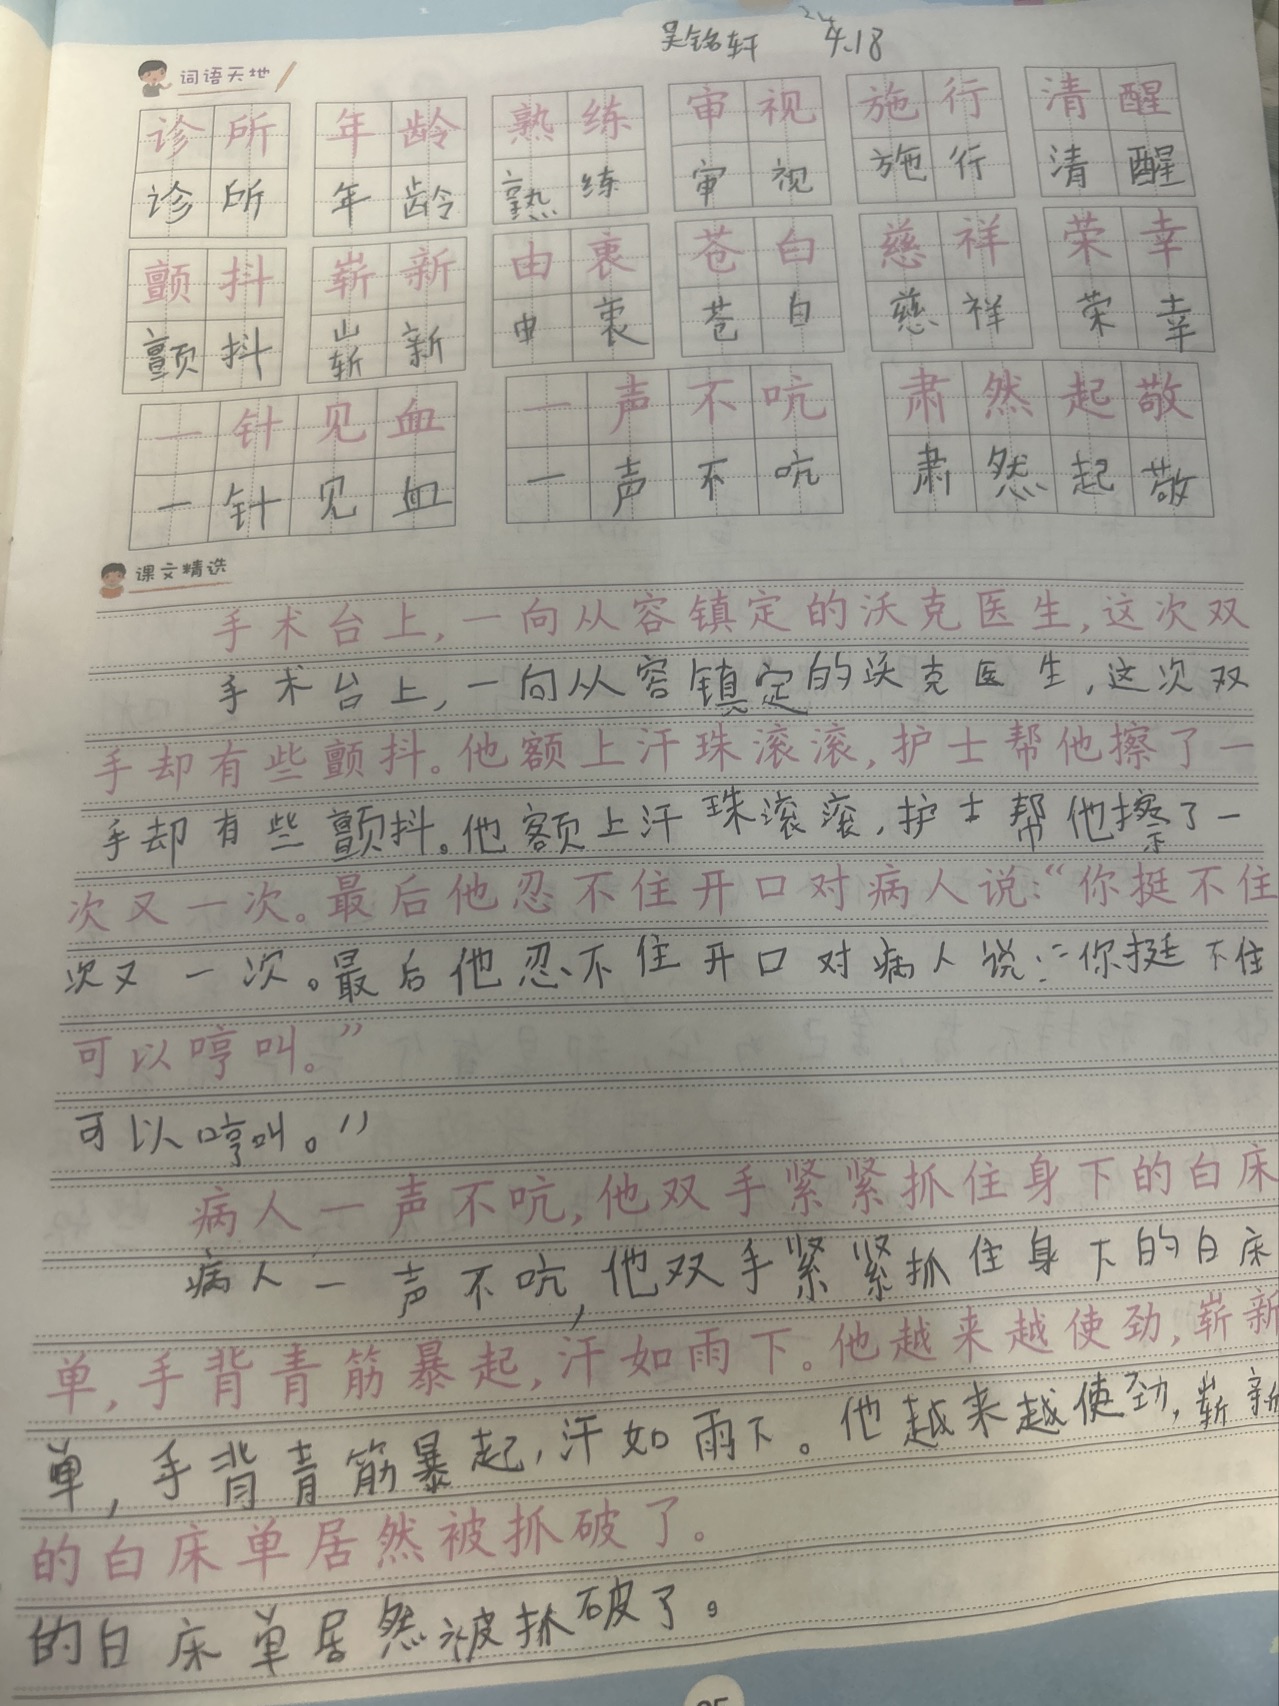 吴铭轩 24 4.18
词语天地
诊所 年龄 熟练 审视 施行 清醒
诊所 年龄 熟练 审视 施行 清醒
颤抖 崭新 由衷 苍白 慈祥 荣幸
颤抖 崭新 由衷 苍白 慈祥 荣幸
一针见血 一声不吭 肃然起敬
一针见血 一声不吭 肃然起敬
课文精选
手术台上,一向从容镇定的沃克医生,这次双
手术台上,一向从容镇定的沃克医生,这次双
手却有些颤抖。他额上汗珠滚滚,护士帮他擦了一
手却有些颤抖。他额上汗珠滚滚,护士帮他擦了一
次又一次。最后他忍不住开口对病人说:“你挺不住
次又一次。最后他忍不住开口对病人说:“你挺不住
可以哼叫。”
可以哼叫。”
病人一声不吭,他双手紧紧抓住身下的白床
病人一声不吭,他双手紧紧抓住身下的白床
单,手背青筋暴起,汗如雨下。他越来越使劲,崭新
单,手背青筋暴起,汗如雨下。他越来越使劲,崭新
的白床单居然被抓破了。
的白床单居然被抓破了。